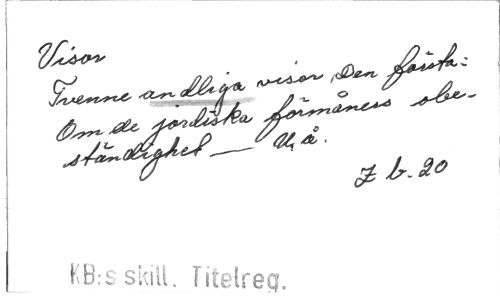 Visor
Tvenne andliga visor, Den första:
Om de jordiska förmåners obe-
ständighet — U, å.
Z b. 20
KB:s skill. Titelreg.